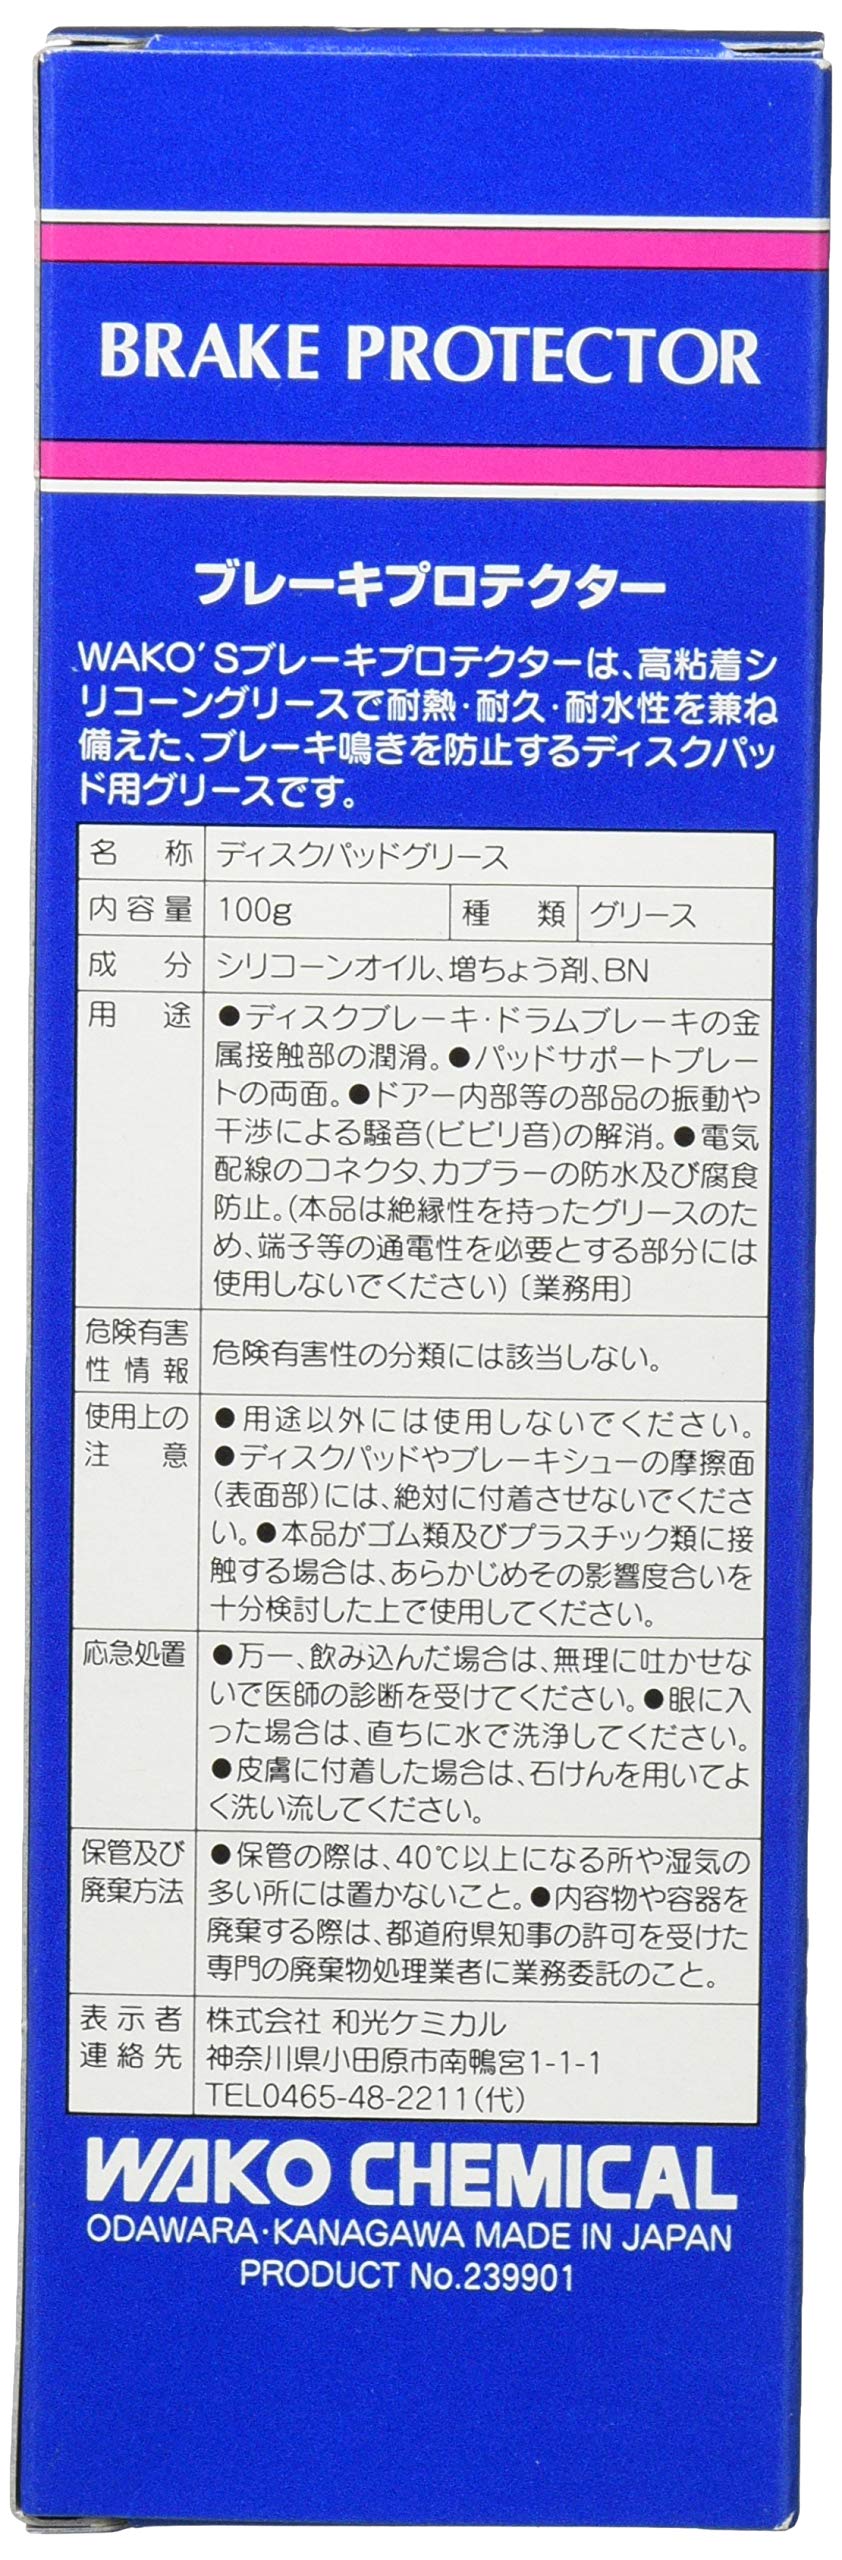 BRAKE PROTECTOR
ブレーキプロテクター
WAKO'Sブレーキプロテクターは、高粘着シ
リコーングリースで耐熱・耐久・耐水性を兼ね
備えた、ブレーキ鳴きを防止するディスクパッ
ド用グリースです。
名 称 ディスクパッドグリース
内容量 100g 種 類 グリース
成 分 シリコーンオイル、増ちょう剤、BN
用 途 ●ディスクブレーキ・ドラムブレーキの金
属接触部の潤滑。●パッドサポートプレー
トの両面。●ドアー内部等の部品の振動や
干渉による騒音(ビビリ音)の解消。●電気
配線のコネクタ、カプラーの防水及び腐食
防止。(本品は絶縁性を持ったグリースのた
め、端子等の通電性を必要とする部分には
使用しないでください)〔業務用〕
危険有害
性情報 危険有害性の分類には該当しない。
使用上の ●用途以外には使用しないでください。
注 意 ●ディスクパッドやブレーキシューの摩擦面
(表面部)には、絶対に付着させないでくださ
い。●本品がゴム類及びプラスチック類に接
触する場合は、あらかじめその影響度合いを
十分検討した上で使用してください。
応急処置 ●万一、飲み込んだ場合は、無理に吐かせな
いで医師の診断を受けてください。●眼に入
った場合は、直ちに水で洗浄してください。
●皮膚に付着した場合は、石けんを用いてよ
く洗い流してください。
保管及び ●保管の際は、40℃以上になる所や湿気の
廃棄方法 多い所には置かないこと。●内容物や容器を
廃棄する際は、都道府県知事の許可を受けた
専門の廃棄物処理業者に業務委託のこと。
表示者 株式会社 和光ケミカル
連絡先 神奈川県小田原市南鴨宮1-1-1
TEL0465-48-2211(代)
WAKO CHEMICAL
ODAWARA・KANAGAWA MADE IN JAPAN
PRODUCT No.239901